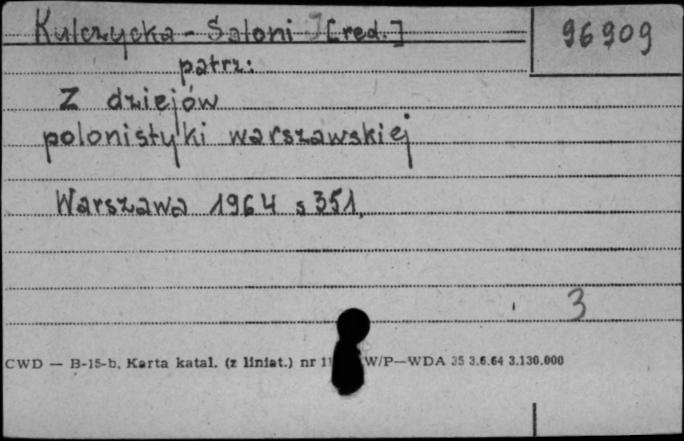 Kulczycka - Saloni J [red.]
96909
patrz:
Z dziejów
polonistyki warszawskiej
Warszawa 1964 s 351,
3
CWD — B-15-b, Karta katal. (z liniat.) nr W/P—WDA 35 3.6.64 3.130.000